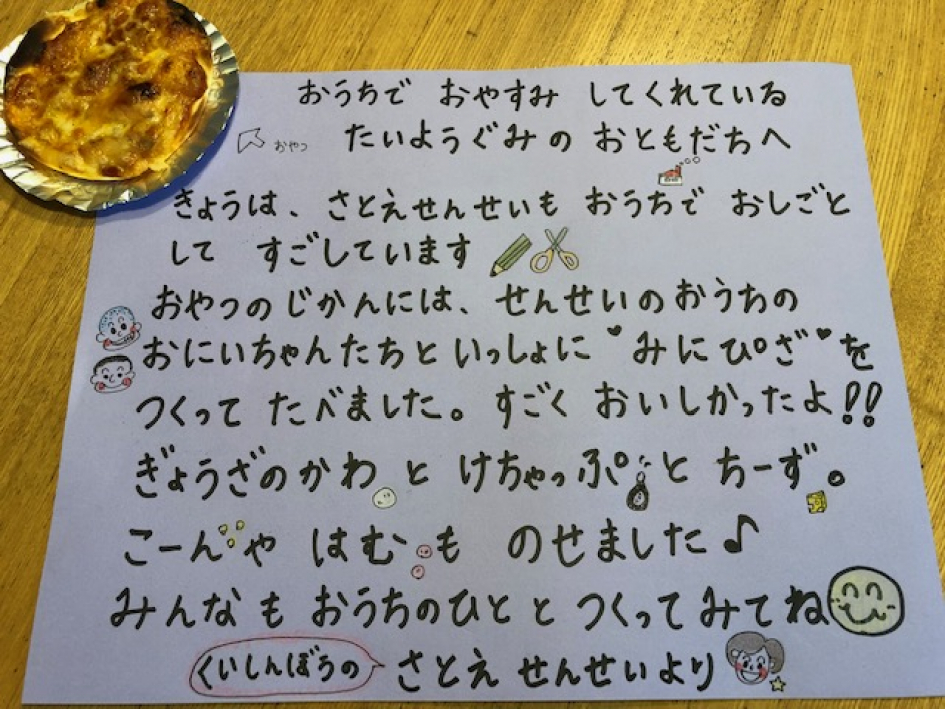 おうちで おやすみ してくれている
おやつ たいようぐみの おともだちへ
きょうは、さとえせんせいも おうちで おしごと
して すごしています
おやつのじかんには、せんせいのおうちの
おにいちゃんたちと いっしょに ♥みにぴざ♥を
つくって たべました。すごく おいしかったよ!!
ぎょうざのかわ と けちゃっぷ と ちーず。
こーん や はむ も のせました♪
みんな も おうちのひと と つくって みてね
くいしんぼうの さとえ せんせいより